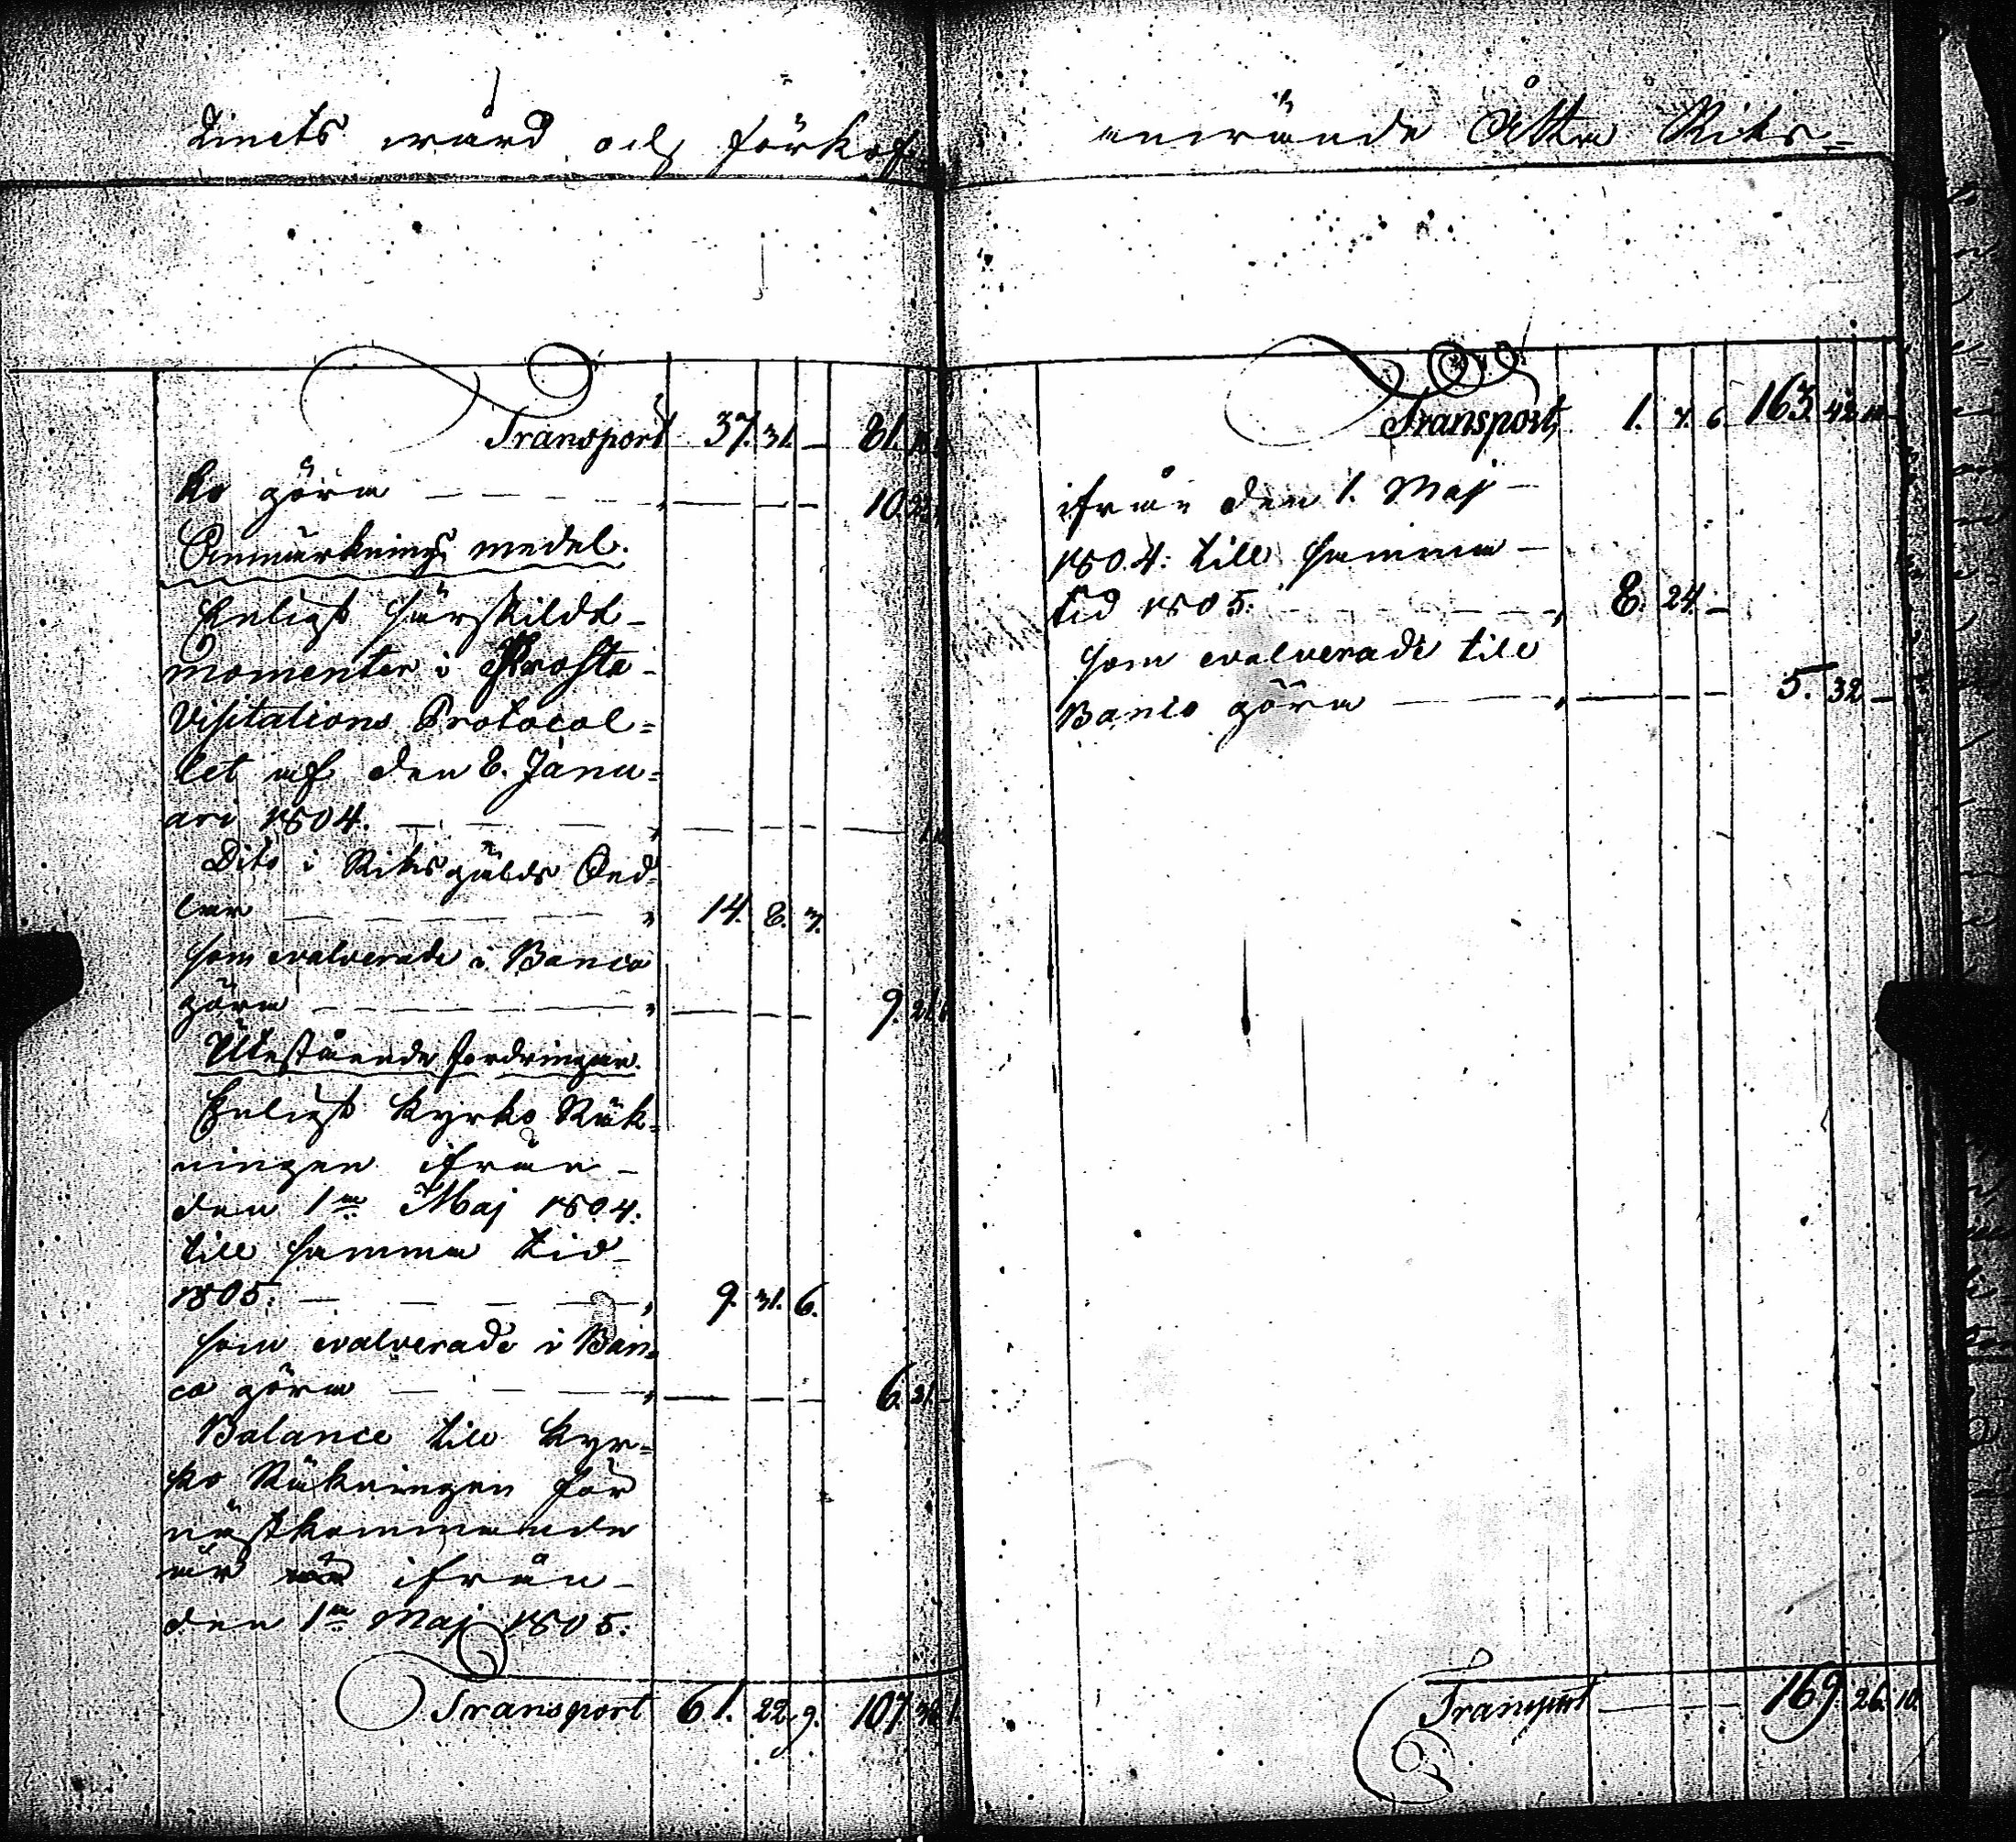 tinets wård och förkof-
Transport 37. 31. — 81.
ko göra — — — — 10.
Anmärknings medel.
Enligt särskildt
momenter i Proste
Visitations Protocol=
let af den 8. Janu=
ari 1804. — — —
Dito i Riksgälds Sed=
lar — — — 14. 8. 3.
som evalverade i Banco
göra — — — — 9. 21.
Utestående fordringar.
Enligt Kyrko Räk=
ningen ifrån
den 1m Maj 1804.
till samma tid
1805: — — — 9. 31. 6.
som evalverade i Ban=
co göra — — — — 6. 21. —
Balance till Kyr=
ko Räkningen för
nästkommande
år ifrån
den 1m Maj 1805:
Transport 61. 22. 9. 107. 36. 1.
enwände Åtta Riks=
Transport 1. 7. 6. 163. 42. 10.
ifrån den 1. Maj
1804: till samma
tid 1805: — — — 8. 24. —
som evalverade till
Banco göra — — — — 5. 32. —
Transport — — — 169. 26. 10.